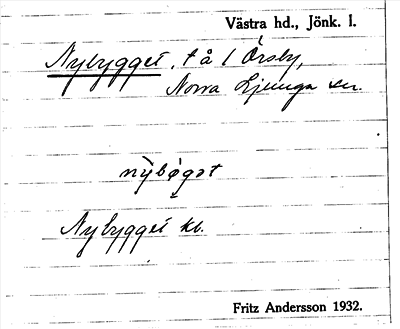 Västra hd., Jönk. l.
Nybygget, t å 1 Örsby,
Norra Ljunga sn.
nybøgət
Nybygget kb.
Fritz Andersson 1932.